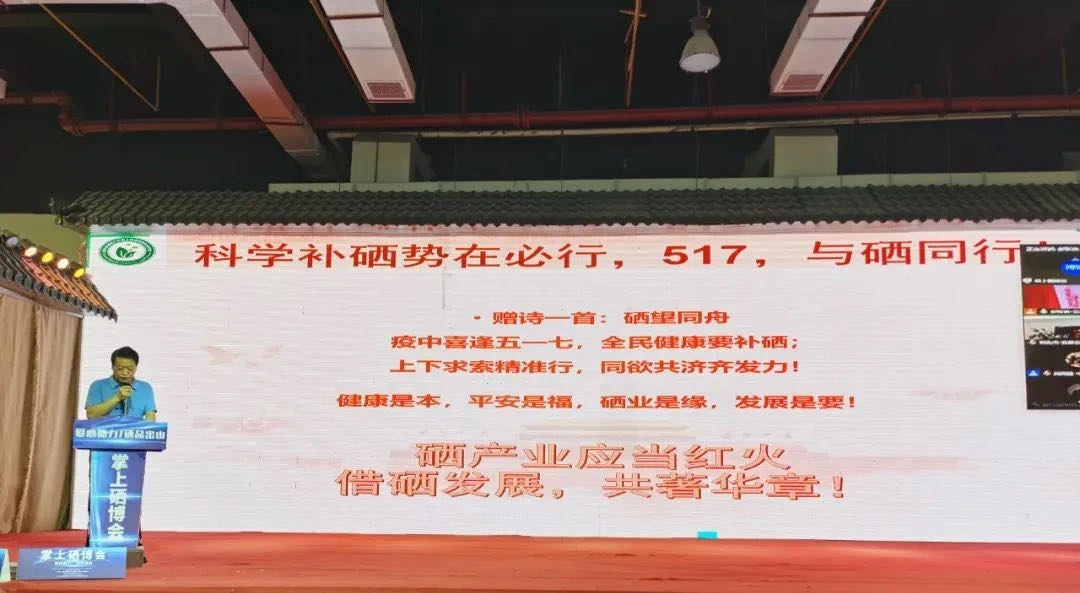 科学补硒势在必行，517，与硒同行
·赠诗一首：硒望同舟
疫中喜逢五一七，全民健康要补硒；
上下求索精准行，同欲共济齐发力！
健康是本，平安是福，硒业是缘，发展是要！
硒产业应当红火
借硒发展，共著华章！
爱心助力/硒品出山
掌上硒博会
掌上硒博会